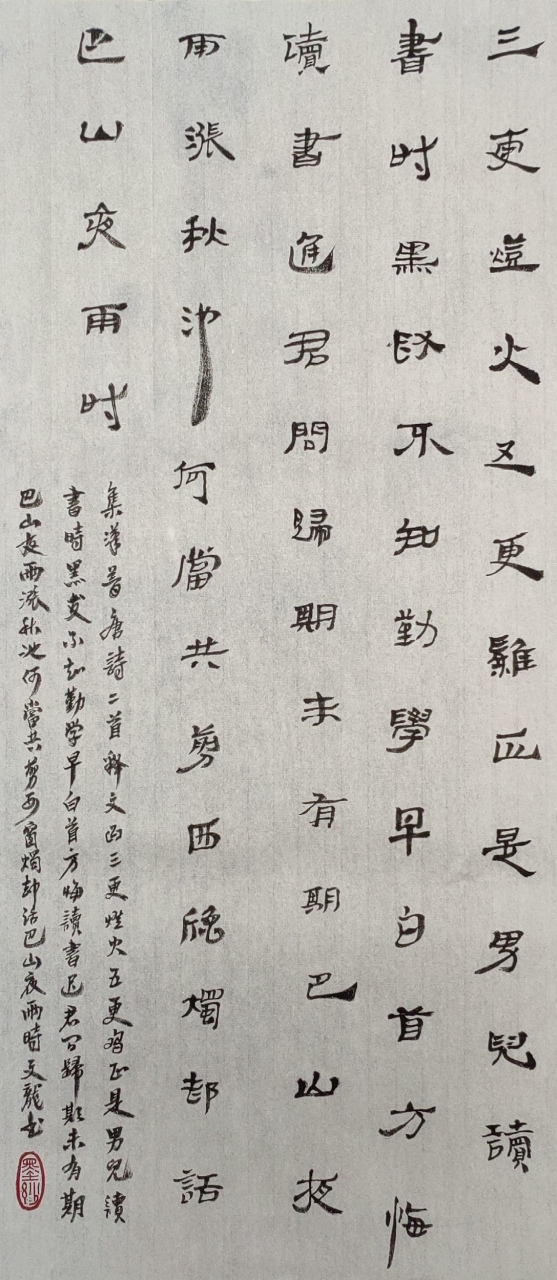 三更燈火五更雞正是男兒讀
書時黑髮不知勤學早白首方悔
讀書遲君問歸期未有期巴山夜
雨漲秋池何當共剪西窗燭却話
巴山夜雨時
集漢簡唐詩二首释文曰三更燈火五更鸡正是男兒讀
書時黑发不知勤学早白首方悔讀書迟君问歸期未有期
巴山夜雨漲秋池何當共剪西窗燭却話巴山夜雨時文龍书